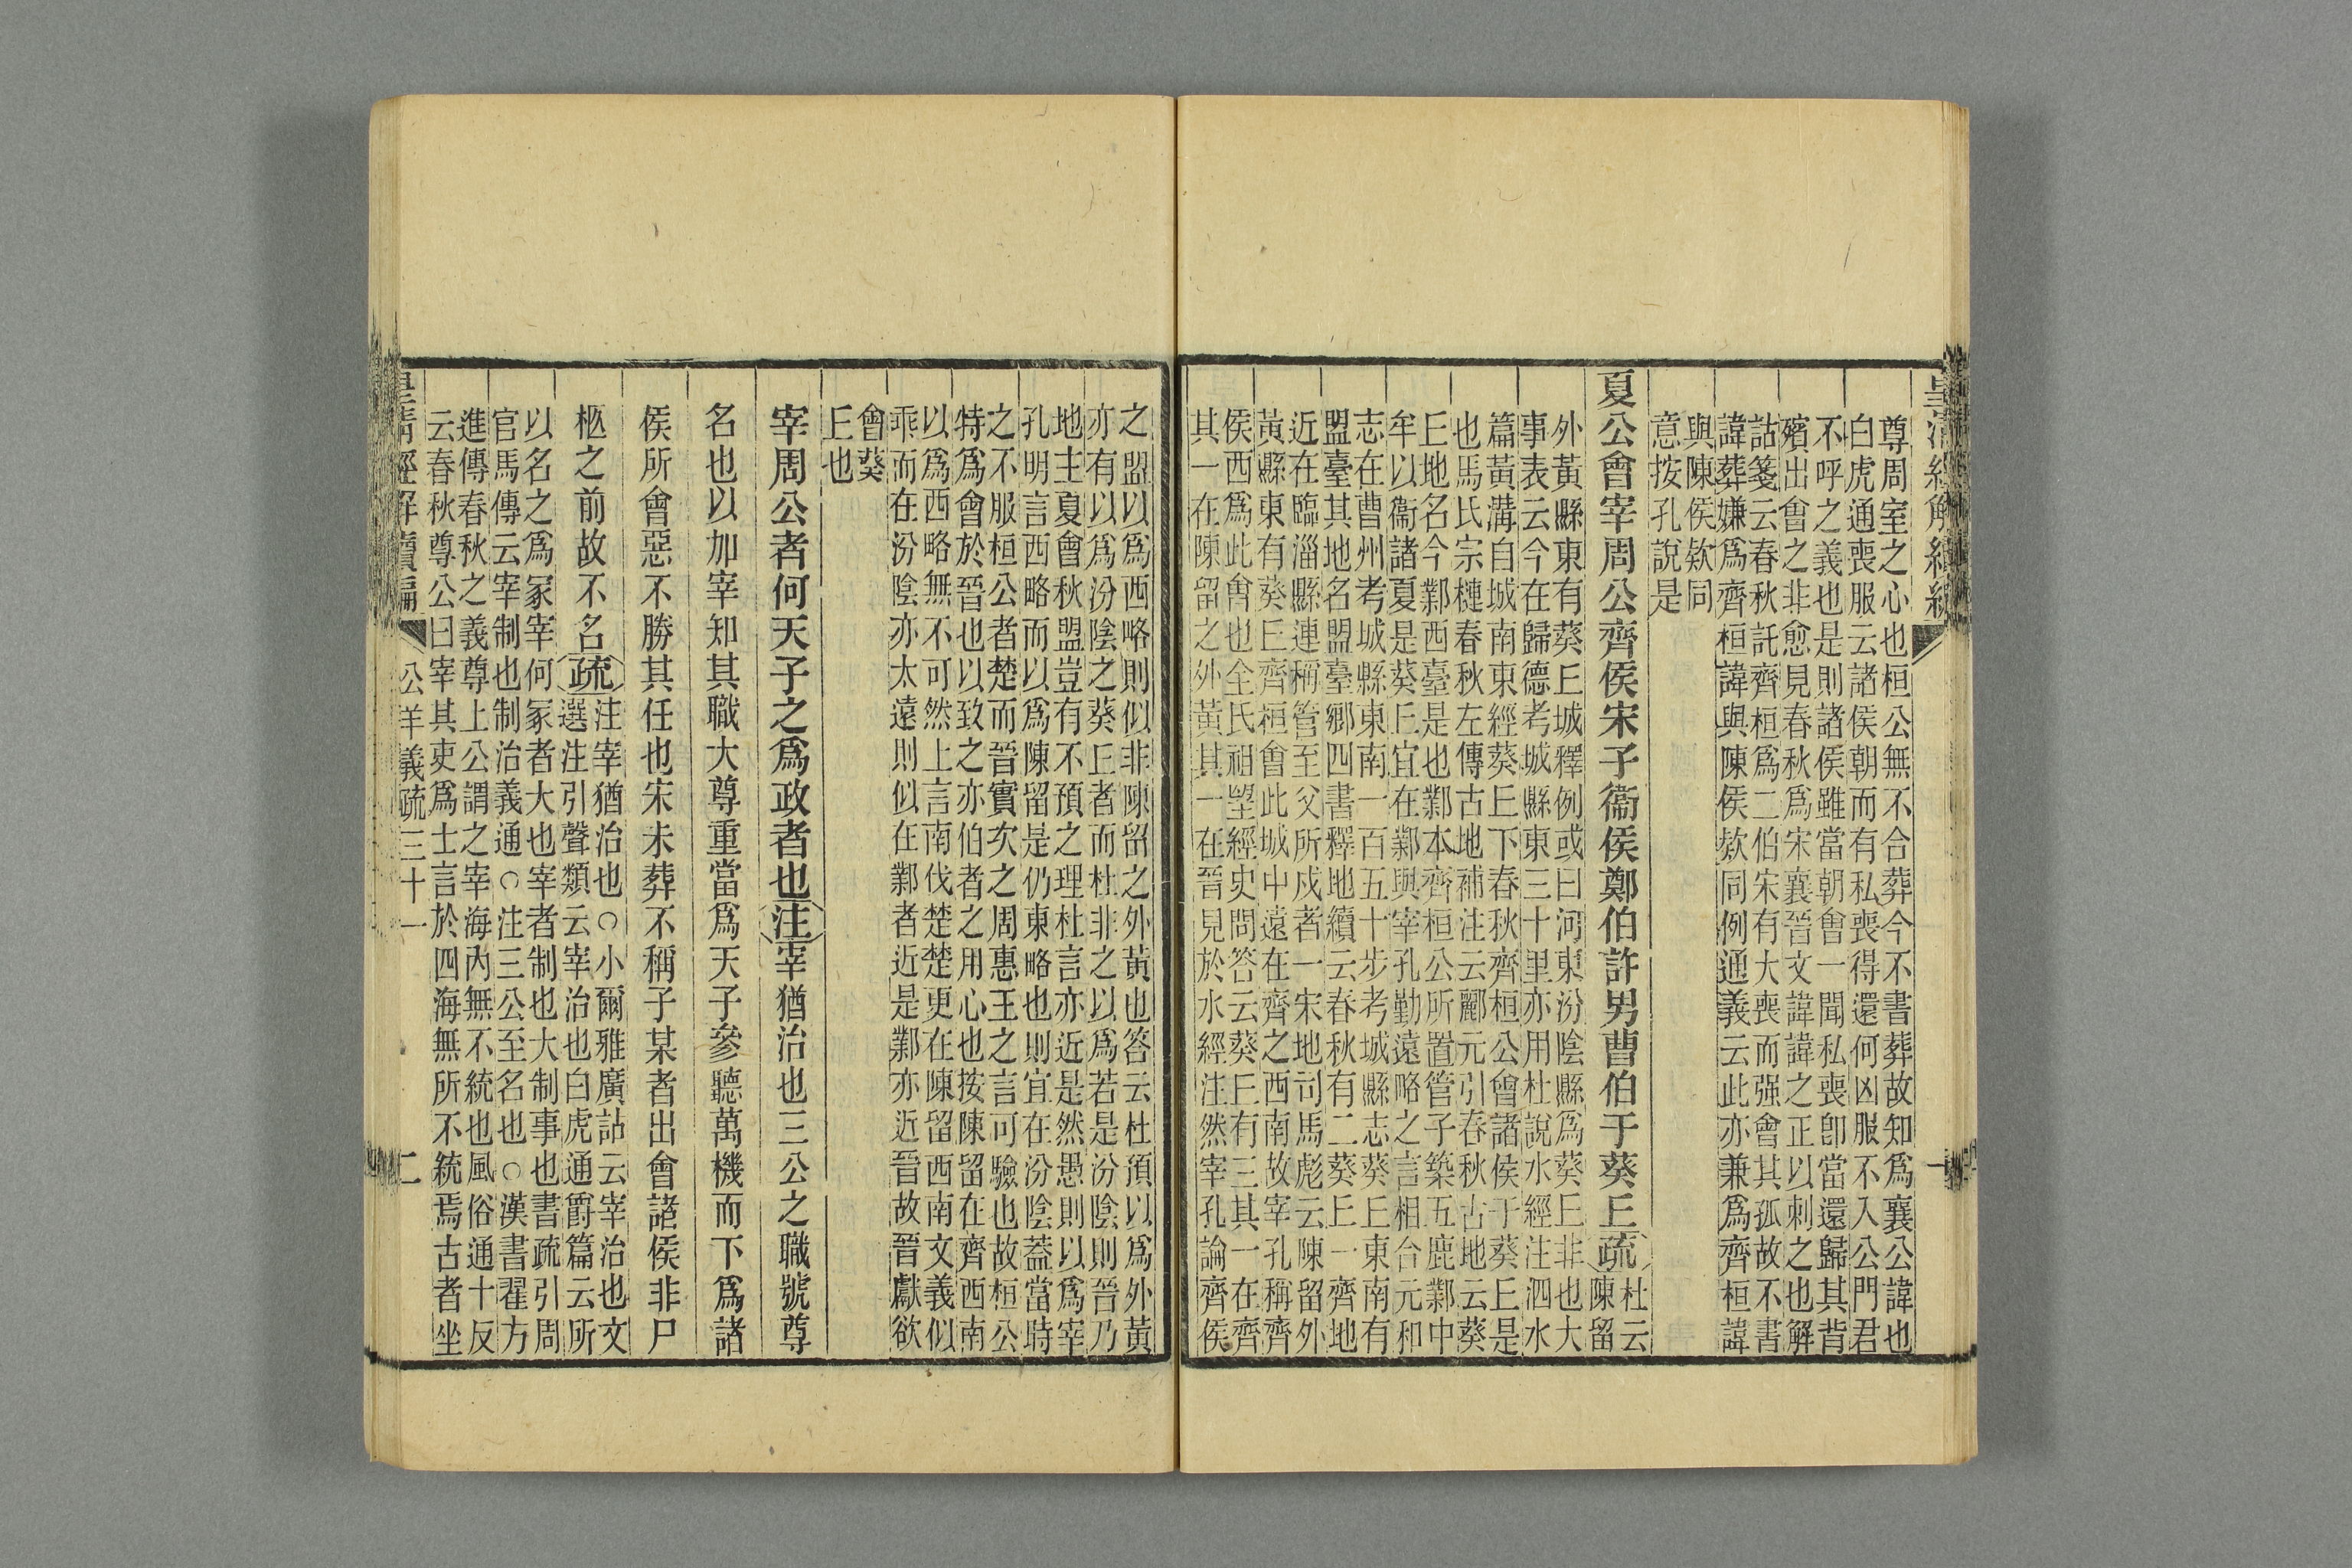 尊周室之心也桓公無不合葬今不書葬故知爲襄公諱也
白虎通喪服云諸侯朝而有私喪得還何凶服不入公門君
不呼之義也是則諸侯雖當朝會一聞私喪卽當還歸其背
殯出會之非愈見春秋爲宋襄晉文諱諱之正以刺之也解
詁箋云春秋託齊桓爲二伯宋有大喪而强會其孤故不書
諱葬嫌爲齊桓諱與陳侯欵同例通義云此亦兼爲齊桓諱
與陳侯欵同
意按孔說是
夏公會宰周公齊侯宋子衞侯鄭伯許男曹伯于葵丘疏杜云
陳留
外黃縣東有葵丘城釋例或曰河東汾陰縣爲葵丘非也大
事表云今在歸德考城縣東三十里亦用杜說水經注泗水
篇黃溝自城南東經葵丘下春秋齊桓公會諸侯于葵丘是
也馬氏宗槤春秋左傳古地補注云酈元引春秋古地云葵
丘地名今鄴西臺是也鄴本齊桓公所置管子築五鹿鄴中
牟以衞諸夏是葵丘宜在鄴與宰孔勤遠略之言相合元和
志在曹州考城縣東南一百五十步考城縣志葵丘東南有
盟臺其地名盟臺鄉四書釋地續云春秋有二葵丘一齊地
近在臨淄縣連稱管至父所戍者一宋地司馬彪云陳留外
黃縣東有葵丘齊桓會此城中遠在齊之西南故宰孔稱齊
侯西爲此會也全氏祖望經史問答云葵丘有三其一在齊
其一在陳留之外黃其一在晉見於水經注然宰孔論齊侯
之盟以爲西略則似非陳留之外黃也答云杜預以爲外黃
亦有以爲汾陰之葵丘者而杜非之以爲若是汾陰則晉乃
地主夏會秋盟豈有不預之理杜言亦近是然愚則以爲宰
孔明言西略而以爲陳留是仍東略也則宜在汾陰蓋當時
之不服桓公者楚而晉實次之周惠王之言可驗也故桓公
特爲會於晉也以致之亦伯者之用心也按陳留在齊西南
以爲西略無不可然上言南伐楚楚更在陳留西南文義似
乖而在汾陰亦太遠則似在鄴者近是鄴亦近晉故晉獻欲
會葵
丘也
宰周公者何天子之爲政者也注宰猶治也三公之職號尊
名也以加宰知其職大尊重當爲天子參聽萬機而下爲諸
侯所會惡不勝其任也宋未葬不稱子某者出會諸侯非尸
柩之前故不名疏注宰猶治也○小爾雅廣詁云宰治也文
選注引聲類云宰治也白虎通爵篇云所
以名之爲冢宰何冢者大也宰者制也大制事也書疏引周
官馬傳云宰制也制治義通○注三公至名也○漢書翟方
進傳春秋之義尊上公謂之宰海內無不統也風俗通十反
云春秋尊公曰宰其吏爲士言於四海無所不統焉古者坐
皇淸經解續編 公羊義疏三十一 二